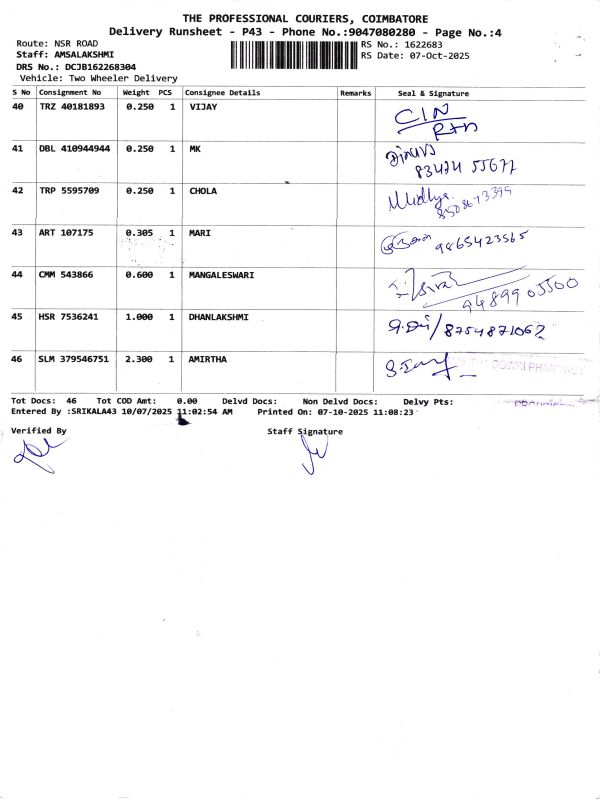 THE PROFESSIONAL COURIERS, COIMBATORE
Delivery Runsheet - P43 - Phone No.:9047080280 - Page No.:4
Route: NSR ROAD
Staff: AMSALAKSHMI
DRS No.: DCJB162268304
Vehicle: Two Wheeler Delivery
RS No.: 1622683
RS Date: 07-Oct-2025
S No Consignment No Weight PCS Consignee Details Remarks Seal & Signature
40 TRZ 40181893 0.250 1 VIJAY
41 DBL 410944944 0.250 1 MK
42 TRP 5595709 0.250 1 CHOLA
43 ART 107175 0.305 1 MARI 9865423565
44 CMM 543866 0.600 1 MANGALESWARI 9489905500
45 HSR 7536241 1.000 1 DHANLAKSHMI 8754871062
46 SLM 379546751 2.300 1 AMIRTHA GOWRI PHARMACY
Tot Docs: 46 Tot COD Amt: 0.00 Delvd Docs: Non Delvd Docs: Delvy Pts:
Entered By :SRIKALA43 10/07/2025 11:02:54 AM Printed On: 07-10-2025 11:08:23
Verified By Staff Signature